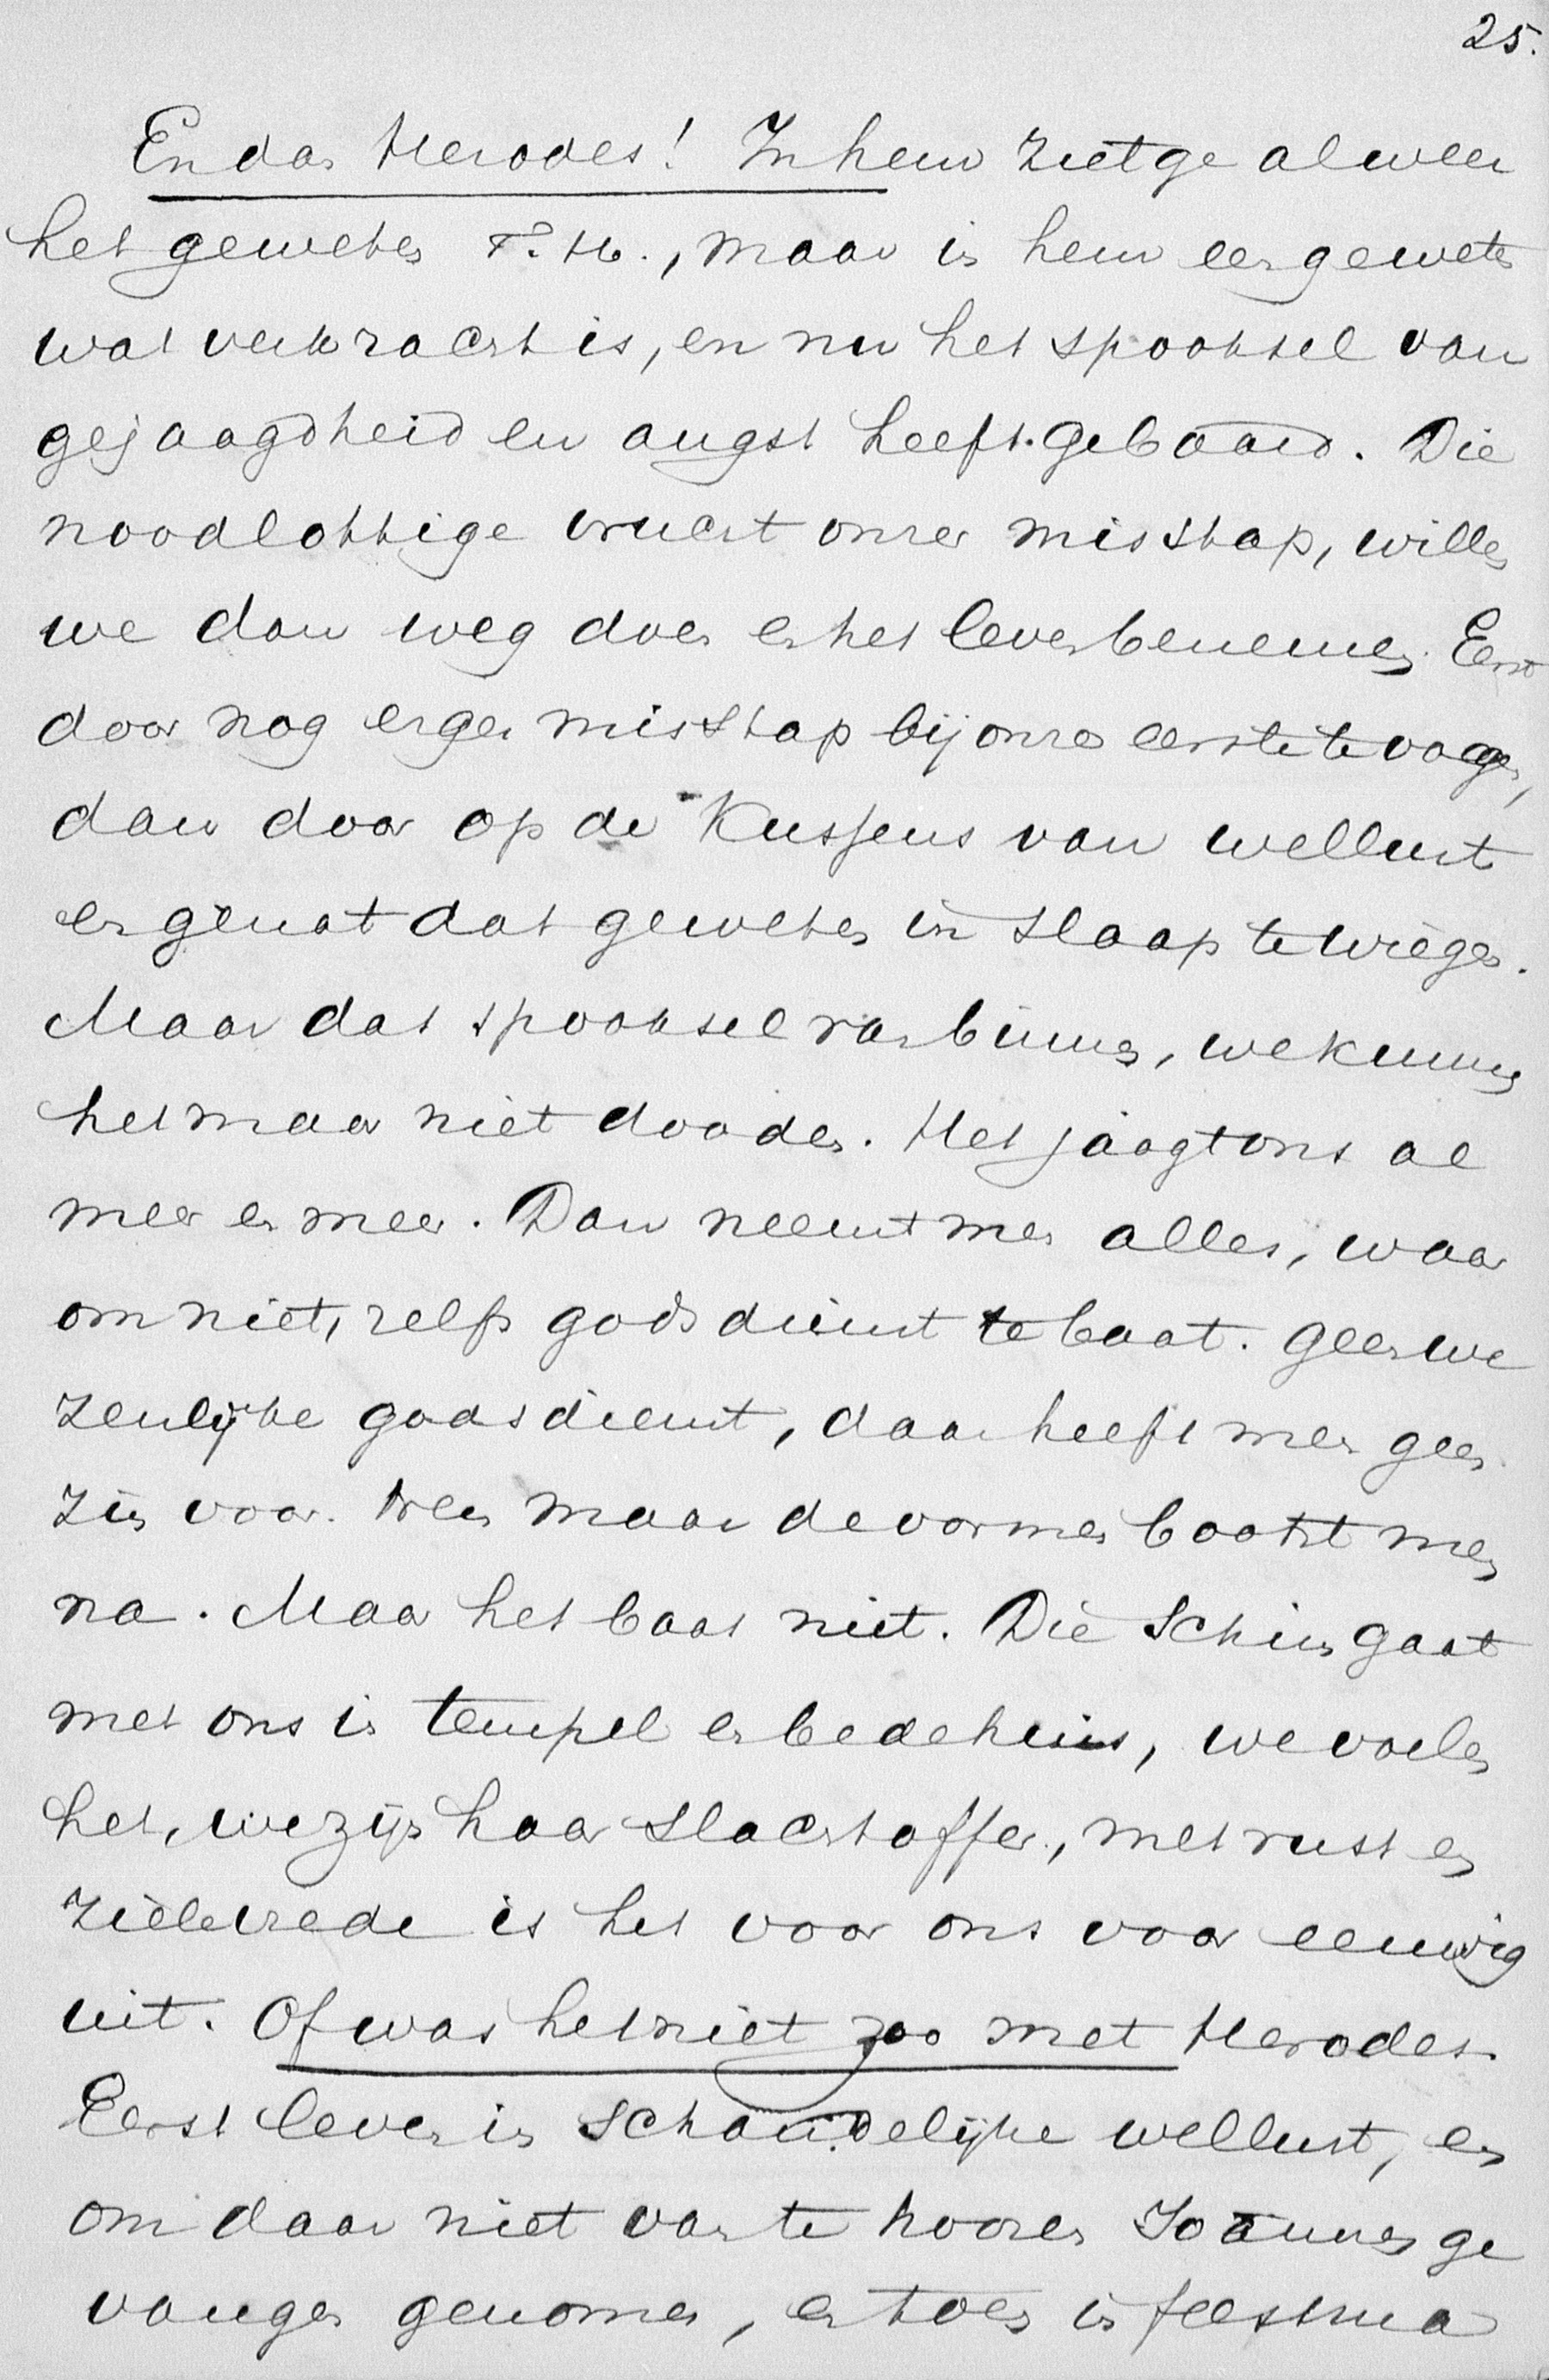 25.
En dan Herodes! In hem ziet ge alweer
het geweten T. H., maar in hem een geweten
wat verkracht is, en nu het spooksel van
gejaagdheid en angst heeft gebaard. Die
noodlottige vrucht onzer misstap, willen
we dan weg doen en het leven benemen. Eerst
door nog erger misstap bij onze eerste te voegen,
dan door op de kussens van wellust
en genot dat geweten in slaap te wiegen.
Maar dat spooksel van binnen, we kunnen
het maar niet dooden. Het jaagt ons al
meer en meer. Dan neemt men alles, waar
om niet, zelfs godsdienst te baat. Geen we
zenlijke godsdienst, daar heeft men geen
zin voor. Neen maar de vormen bootst men
na. Maar het baat niet. Die schim gaat
met ons in tempel en bedehuis, we voelen
het, we zijn haar slachtoffer, met rust en
zielevrede is het voor ons voor eeuwig
uit. Of was het niet zoo met Herodes.
Eerst leven in schandelijke wellust, en
om daar niet van te hooren Joannes ge
vangen genomen, en toen in feestma